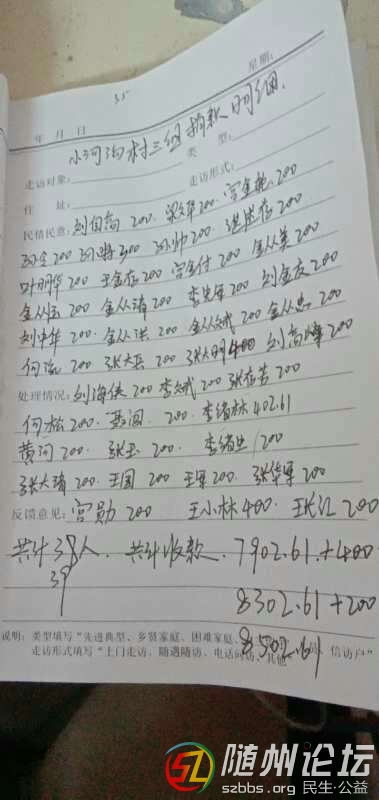 35
年 月 日 星期:
小河沟村三组捐款明细
走访对象: 类 型:
住 址: 走访形式:
民情民意: 刘自高 200 200 宫金艳 200
200 300 200 200
叶丽华 200 王金存 200 宫金付 200 金从美 200
金从玉 200 金从涛 200 李先军 200 刘金友 200
刘中华 200 金从洪 200 金从斌 200 金从忠 200
何流 200 张大兵 200 张大明 400 刘高峰 200
处理情况: 刘海侠 200 李斌 200 张在芳 200
何松 200 200 李绪林 402.61
黄河 200 张玉 200 李绪 200
张大涛 200 王国 200 王军 200 张华军 200
反馈意见: 宫勋 200 王小林 400 200
共计38人、共计收款 7902.61.+400
39
8302.61+200
8502.61
说明: 类型填写“先进典型、乡贤家庭、困难家庭、 信访户”
走访形式填写“上门走访、随遇随访、电话问访、其他
随州论坛
szbbs.org 民生·公益